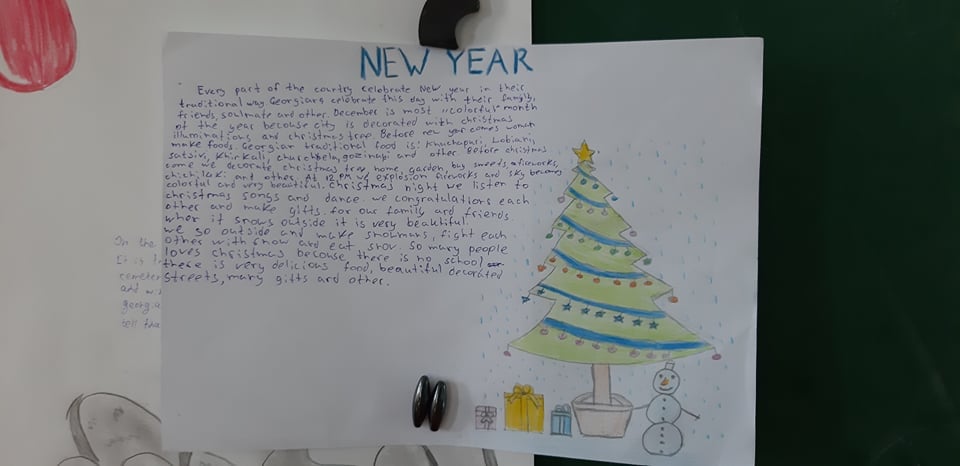 NEW YEAR
Every part of the country celebrate New year in their
traditional way. Georgians celebrate this day with their family,
friends, soulmate and other. December is most "colorful" month
of the year becouse city is decorated with christmas
illuminations and christmas tree. Before new year comes women
make foods. Georgian traditional food is: Khachapuri, Lobiani,
satsivi, Khinkali, churchkela, gozinayi and other. Before christmas
come we decorate christmas tree, home, garden, buy sweeds, fireworks,
chichilaki and other. At 12 PM we explosion fireworks and sky become
colorful and very beautiful. Christmas night we listen to
christmas songs and dance. we congratulations each
other and make gifts for our family and friends.
when it snows outside it is very beautiful.
we go outside and make snowmans, fight each
other with snow and eat snow. So many people
loves christmas becouse there is no school
there is very delicious food, beautiful decorated
streets, many gifts and other.
On the
It is
cemeter
and w
georgia
tell